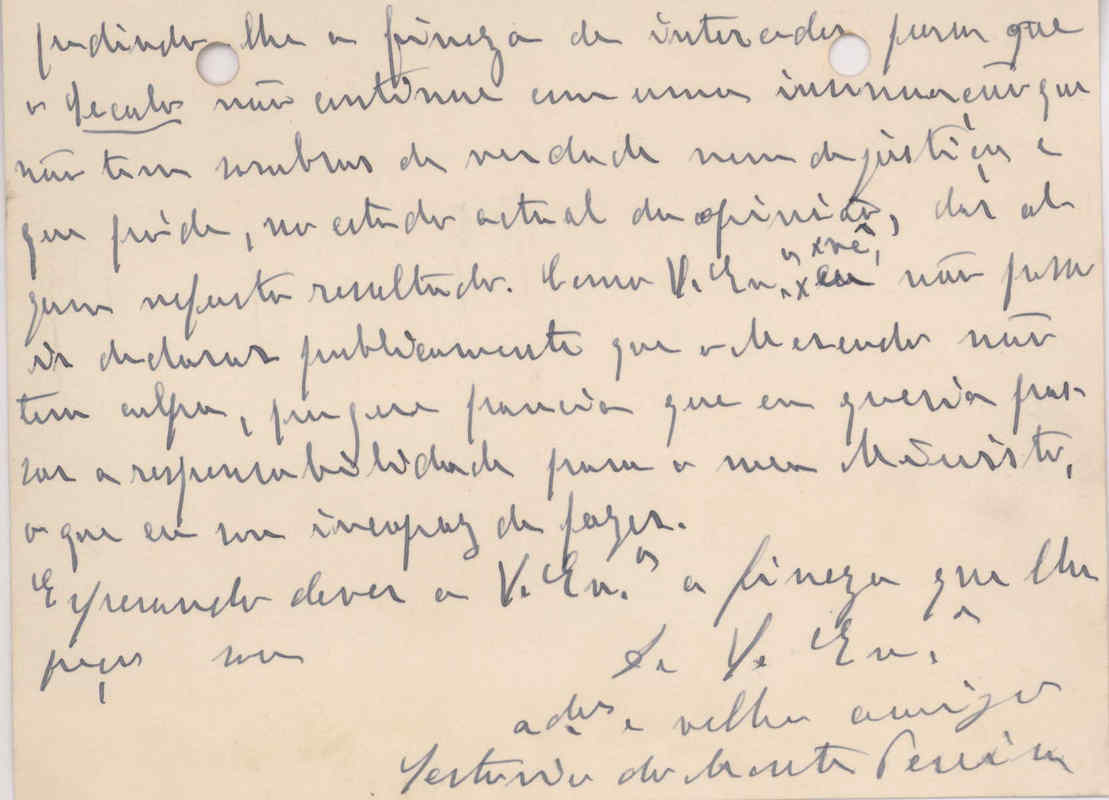 pedindo-lhe a fineza de interceder para que
o Seculo não continue com uma insinuação que
não tem sombras de verdade nem de justiça e
que póde, no estado actual da opinião, dar al-
gum nefasto resultado. Como V. Ex.ª vê, eu não posso
ir declarar publicamente que o Mercado não
tem culpa, porque parecia que eu queria pas-
sar a responsabilidade para o meu Ministro,
o que eu sou incapaz de fazer.
Esperando dever a V. Ex.ª a fineza que lhe
peço sou
De V. Ex.ª
e velho amigo
do Monte Pereira